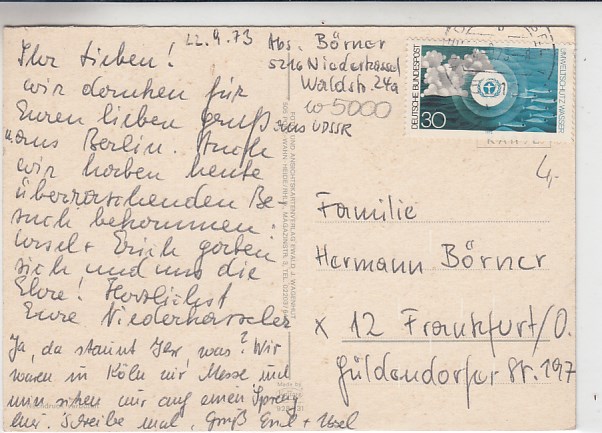 22.9.73
Ihr Lieben!
wir danken für
Euren lieben Gruß aus UDSSR
u. aus Berlin. Auch
wir haben heute
überraschenden Be-
such bekommen.
Ursel + Erich gaben
sich und uns die
Ehre! Herzlichst
Eure Niederkasseler
Ja, da staunt Ihr, was? Wir
waren in Köln zur Messe und
nun sitzen wir auf einen Sprung
hier. Schreibe mal, Gruß Erich + Ursel
Abs. Börner
5216 Niederkassel
Waldstr. 24a
W-5000
DEUTSCHE BUNDESPOST
UMWELTSCHUTZ: WASSER
30
4,-
Familie
Hermann Börner
X 12 Frankfurt/O.
Güldendorfer Str. 197